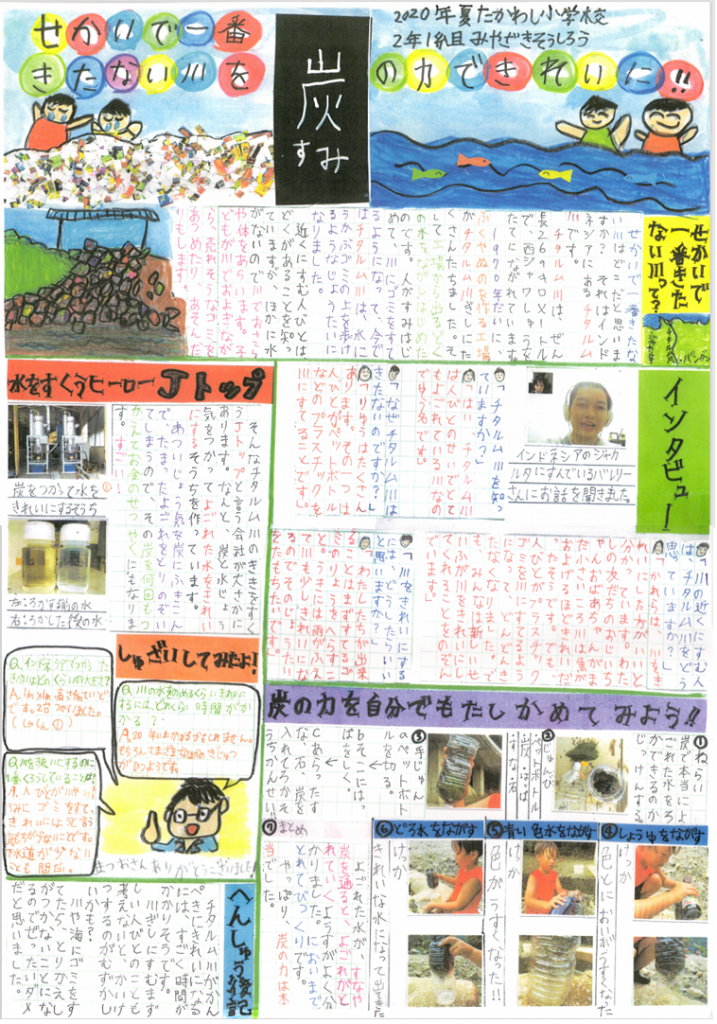 せかいで一番
きたない川を
炭
すみ
の力できれいに!!
2020年夏たかわし小学校
2年1組みやざきそうしろう
せかいで
一番きた
ない川って?
せかいで一番きたな
い川はどこだと思いま
すか? それはインド
ネシアにあるチタルム
川です。
チタルム川は、ぜん
長269キロメートル
で、西ジャワしゅうを
たてにながれています。
1970年だいに、
ふくやぬのを作る工場
がチタルム川ぎしにた
くさんたちました。そ
して工場から出るどく
の水がながれはじめた
のです。人がすみはじ
めて、川にゴミをすて
るようになって、今で
はチタルム川は、水に
うかぶゴミの上を歩け
るようなじょうたいに
なりました。
近くにすむ人びとは
どくがあることを知っ
ていますが、ほかに水
がないので、川でおさら
や体をあらいます。子
どもが川でおよぎなが
ら、売れそうなゴミを
あつめたり、あそんだ
りもします。
インタビュー
インドネシアのジャカ
ルタにすんでいるバレリー
さんにお話を聞きました。
「チタルム川を知っ
ていますか?」
「はい。チタルム川
は人びとのせいでとて
もよごれている川なの
でゆう名です。」
「なぜチタルム川は
きたないのですか?」
「りゆうはたくさん
あります。その一つは
人びとがペットボトル
などのプラスチックを
川にすてることです。」
「川の近くにすむ人
は、チタルム川をどう
思っていますか?」
「かれらは、川をき
れいにした方がいいと
分かっています。わた
しの友だちのおじいち
ゃんおばあちゃんがま
だ小さいころは魚が
およげるほどきれいだ
ったそうです。でも、
人びとがプラスチック
ゴミを川にすてるよう
になって、どんどんき
たなくなりました。で
も、みんなは新しいせ
いふが川をきれいにし
てくれるとしんじて
います。」
「川をきれいにする
には、どうしたらいい
と思いますか?」
「わたしたちが出来
ることはまずすてるゴ
ミのりょうをへらすこ
と。うきには雨がふえ
て川も少しきれいにな
るのでそのじょうたい
をたもちたいです。」
水をすくうヒーローJトップ
炭をつかって水を
きれいにするそうち
左:ろかする前の水
右:ろかした後の水
そんなチタルム川のききをすく
うJトップと言う会社が大さかに
あります。なんと、炭と水じょう
気をつかって、よごれた水をきれい
にするそうちを作っています。
あついじょう気を炭にふきこん
で、たまったよごれをとりのぞい
てしまうので、その炭を何回もつ
かえてお金のせつやくにもなりま
す。すごい!
しゅざいしてみたよ!
炭の力を自分でもたしかめてみよう!!
①ねらい
炭で本当によ
ごれた水をろ
かできるのか
じっけんする。
②じゅんび
ペットボトル
炭・はっぱ
すな・石
③手じゅん
aペットボト
ルを切る。
bそこにはっ
ぱをしく。
cあらったす
な、石、炭を
入れてろかそ
うちかんせい。
④しょうゆをながす
けっか
色とにおいがうすくなった
⑤青い色水をながす
けっか
色がうすくなった!!
⑥どろ水をながす
けっか
きれいな水になって出てきた
⑦まとめ
よごれた水が、すなや
炭を通ると、よごれがと
れていくようすがよく分
かりました。においまで
とれてびっくりです。
やっぱり、炭の力は本
当でした。
へんしゅう後記
チタルム川がかん
ぺきにきれいになる
には、すごく時間が
かかりそうです。
川ぎしにすむまず
しい人びとのことも
考えないと、かいけ
つするのがむずかし
いかも?
川や海にゴミをす
てたら、とりかえし
のつかないことにな
るのでぜったいダメ
だと思いました。